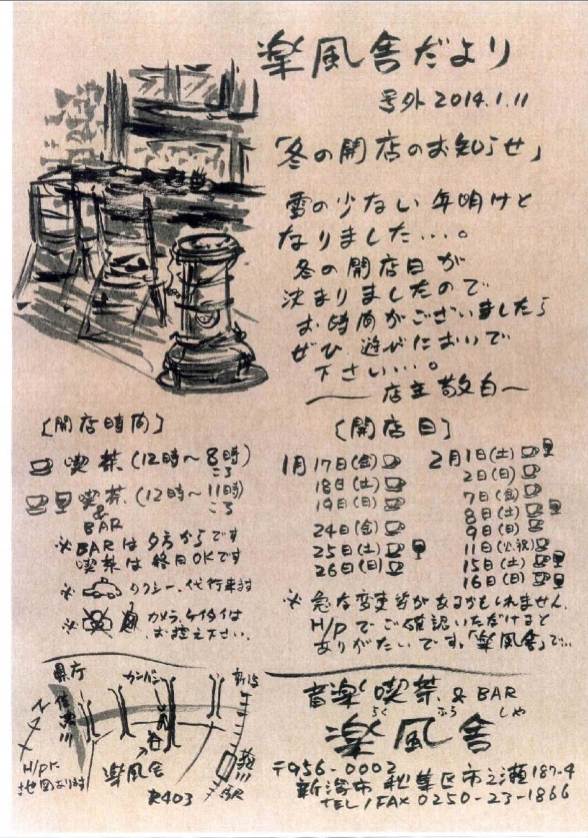 楽風舎だより
号外 2014.1.11
「冬の開店のお知らせ」
雪の少ない年明けと
なりました...。
冬の開店日が
決まりましたので
お時間がございましたら
ぜひ 遊びにおいで
下さい...。
〜店主敬白〜
[開店時間]
喫茶 (12時〜8時)
ころ
喫茶 (12時〜11時)
& ころ
BAR
※BARは夕方からです
喫茶は終日OKです
※ タクシー、代行来ます
※ カメラ、ケイタイは
お控え下さい。
[開店日]
1月 17日(金)
18日(土)
19日(日)
24日(金)
25日(土)
26日(日)
2月1日(土)
2日(日)
7日(金)
8日(土)
9日(日)
11日(火.祝)
15日(土)
16日(日)
※ 急な変更等があるかもしれません。
H/Pでご確認いただけると
ありがたいです。「楽風舎」で...
県庁
信濃川
N
H/Pに
地図あります
楽風舎
R403
JR
音楽喫茶 & BAR
らく ふう しゃ
楽風舎
〒956-0002
新潟市秋葉区市之瀬187-4
TEL/FAX 0250-23-1866